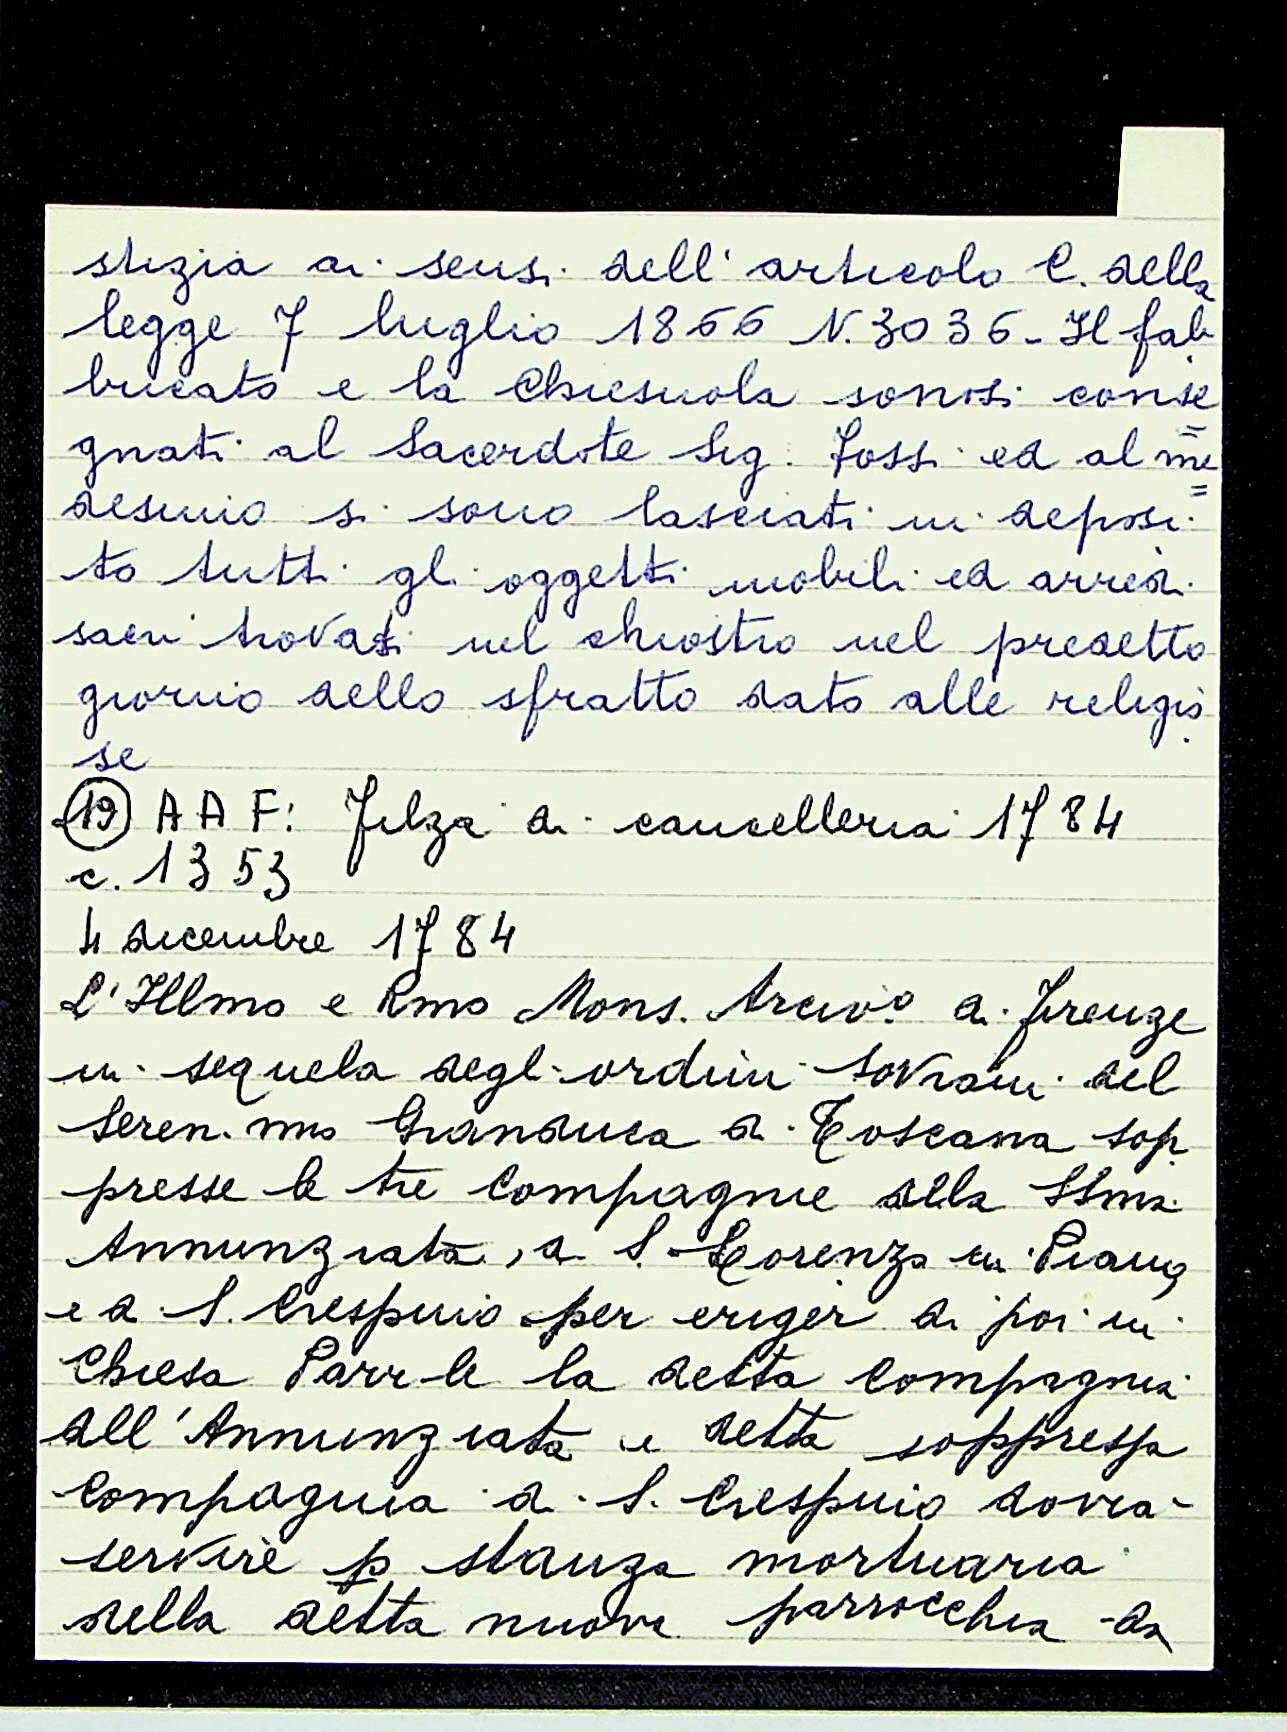 stizia ai sensi dell' articolo C. della
legge 7 luglio 1866 N. 3036 - Il fab
bricato e la Chiesuola sonosi conse
gnati al Sacerdote Sig. Fossi ed al me
desimo si sono lasciati in deposi
to tutti gli oggetti mobili ed arredi
sacri trovati nel chiostro nel predetto
giorno dello sfratto dato alle religio
se
(19) A A F: Filza di cancelleria 1784
c. 1353
4 dicembre 1784
L'Illmo e Rmo Mons. Arciv.o di Firenze
in sequela degli ordini sovrani del
Seren.mo Granduca di Toscana sop
presse le tre Compagnie della SSma
Annunziata, di S. Lorenzo in Piano,
e di S. Crespino per eriger di poi in
Chiesa Parr-le la detta Compagnia
dell'Annunziata e detta soppressa
Compagnia di S. Crespino dovrà
servire p stanza mortuaria
della detta nuova parrocchia da